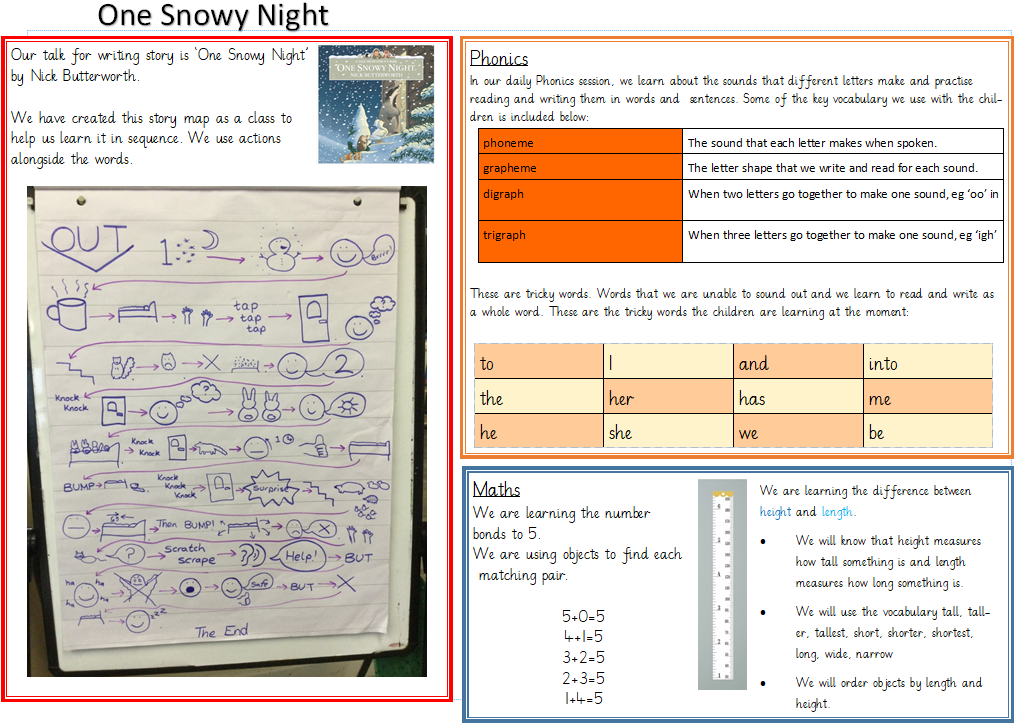 One Snowy Night
Our talk for writing story is ‘One Snowy Night’
by Nick Butterworth.
We have created this story map as a class to
help us learn it in sequence. We use actions
alongside the words.
ONE SNOWY NIGHT
NICK BUTTERWORTH
OUT
1
Brrr!
tap
tap
tap
?
X
2
Knock
Knock
?
Knock
Knock
1
BUMP
Knock
Knock
Knock
Surprise
Then BUMP!
X
?
Scratch
Scrape
Help!
BUT
ha
ha
ha
ha
Safe
BUT
X
zzz
The End
Phonics
In our daily Phonics session, we learn about the sounds that different letters make and practise
reading and writing them in words and sentences. Some of the key vocabulary we use with the chil-
dren is included below:
phoneme The sound that each letter makes when spoken.
grapheme The letter shape that we write and read for each sound.
digraph When two letters go together to make one sound, eg ‘oo’ in
trigraph When three letters go together to make one sound, eg ‘igh’
These are tricky words. Words that we are unable to sound out and we learn to read and write as
a whole word. These are the tricky words the children are learning at the moment:
to I and into
the her has me
he she we be
Maths
We are learning the number
bonds to 5.
We are using objects to find each
matching pair.
5+0=5
4+1=5
3+2=5
2+3=5
1+4=5
We are learning the difference between
height and length.
• We will know that height measures
how tall something is and length
measures how long something is.
• We will use the vocabulary tall, tall-
er, tallest, short, shorter, shortest,
long, wide, narrow
• We will order objects by length and
height.